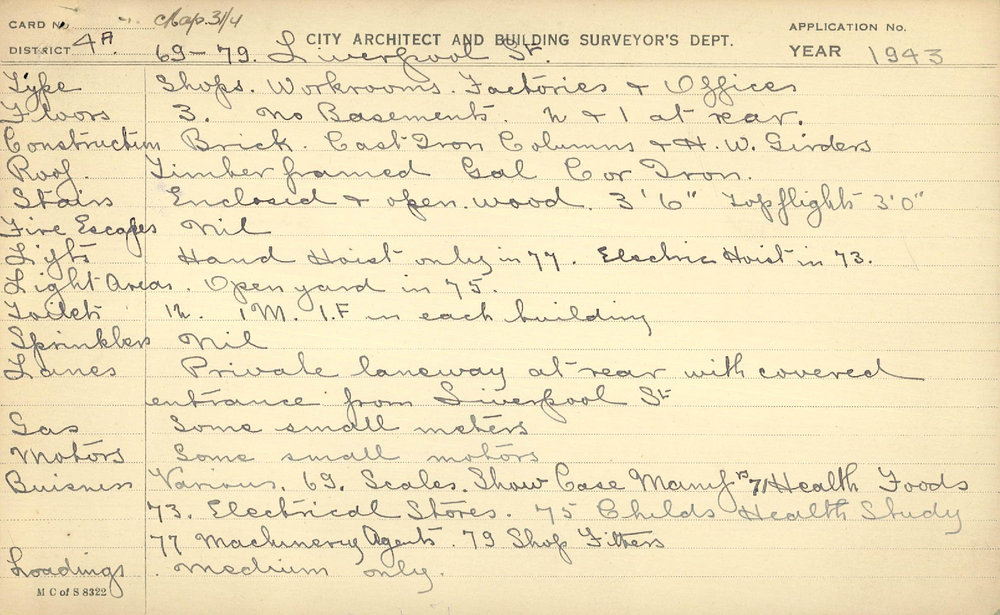 CARD No. Map. 31/4 APPLICATION No.
DISTRICT 4A CITY ARCHITECT AND BUILDING SURVEYOR'S DEPT. YEAR 1943
69-79. Liverpool St.
Type Shops. Workrooms. Factories & Offices
Floors 3. No Basements. 2 & 1 at rear.
Construction Brick. Cast Iron Columns & H. W. Girders
Roof. Timber framed Gal Cor Iron.
Stairs Enclosed & open. wood. 3'6" Top flights 3'0"
Fire Escapes Nil
Lifts Hand Hoist only in 77. Electric Hoist in 73.
Light Areas. Open yard in 75.
Toilets 12. 1M. 1.F in each building
Sprinklers Nil
Lanes Private laneway at rear with covered
entrance from Liverpool St
Gas Some small meters
Motors Some small motors
Buisness Various. 69. Scales. Show Case Manufrs 71 Health Foods
73. Electrical Stores. 75 Childs Health Study
77 Machinery Agents. 79 Shop Fitters
Loadings. Medium only.
M C of S 8322